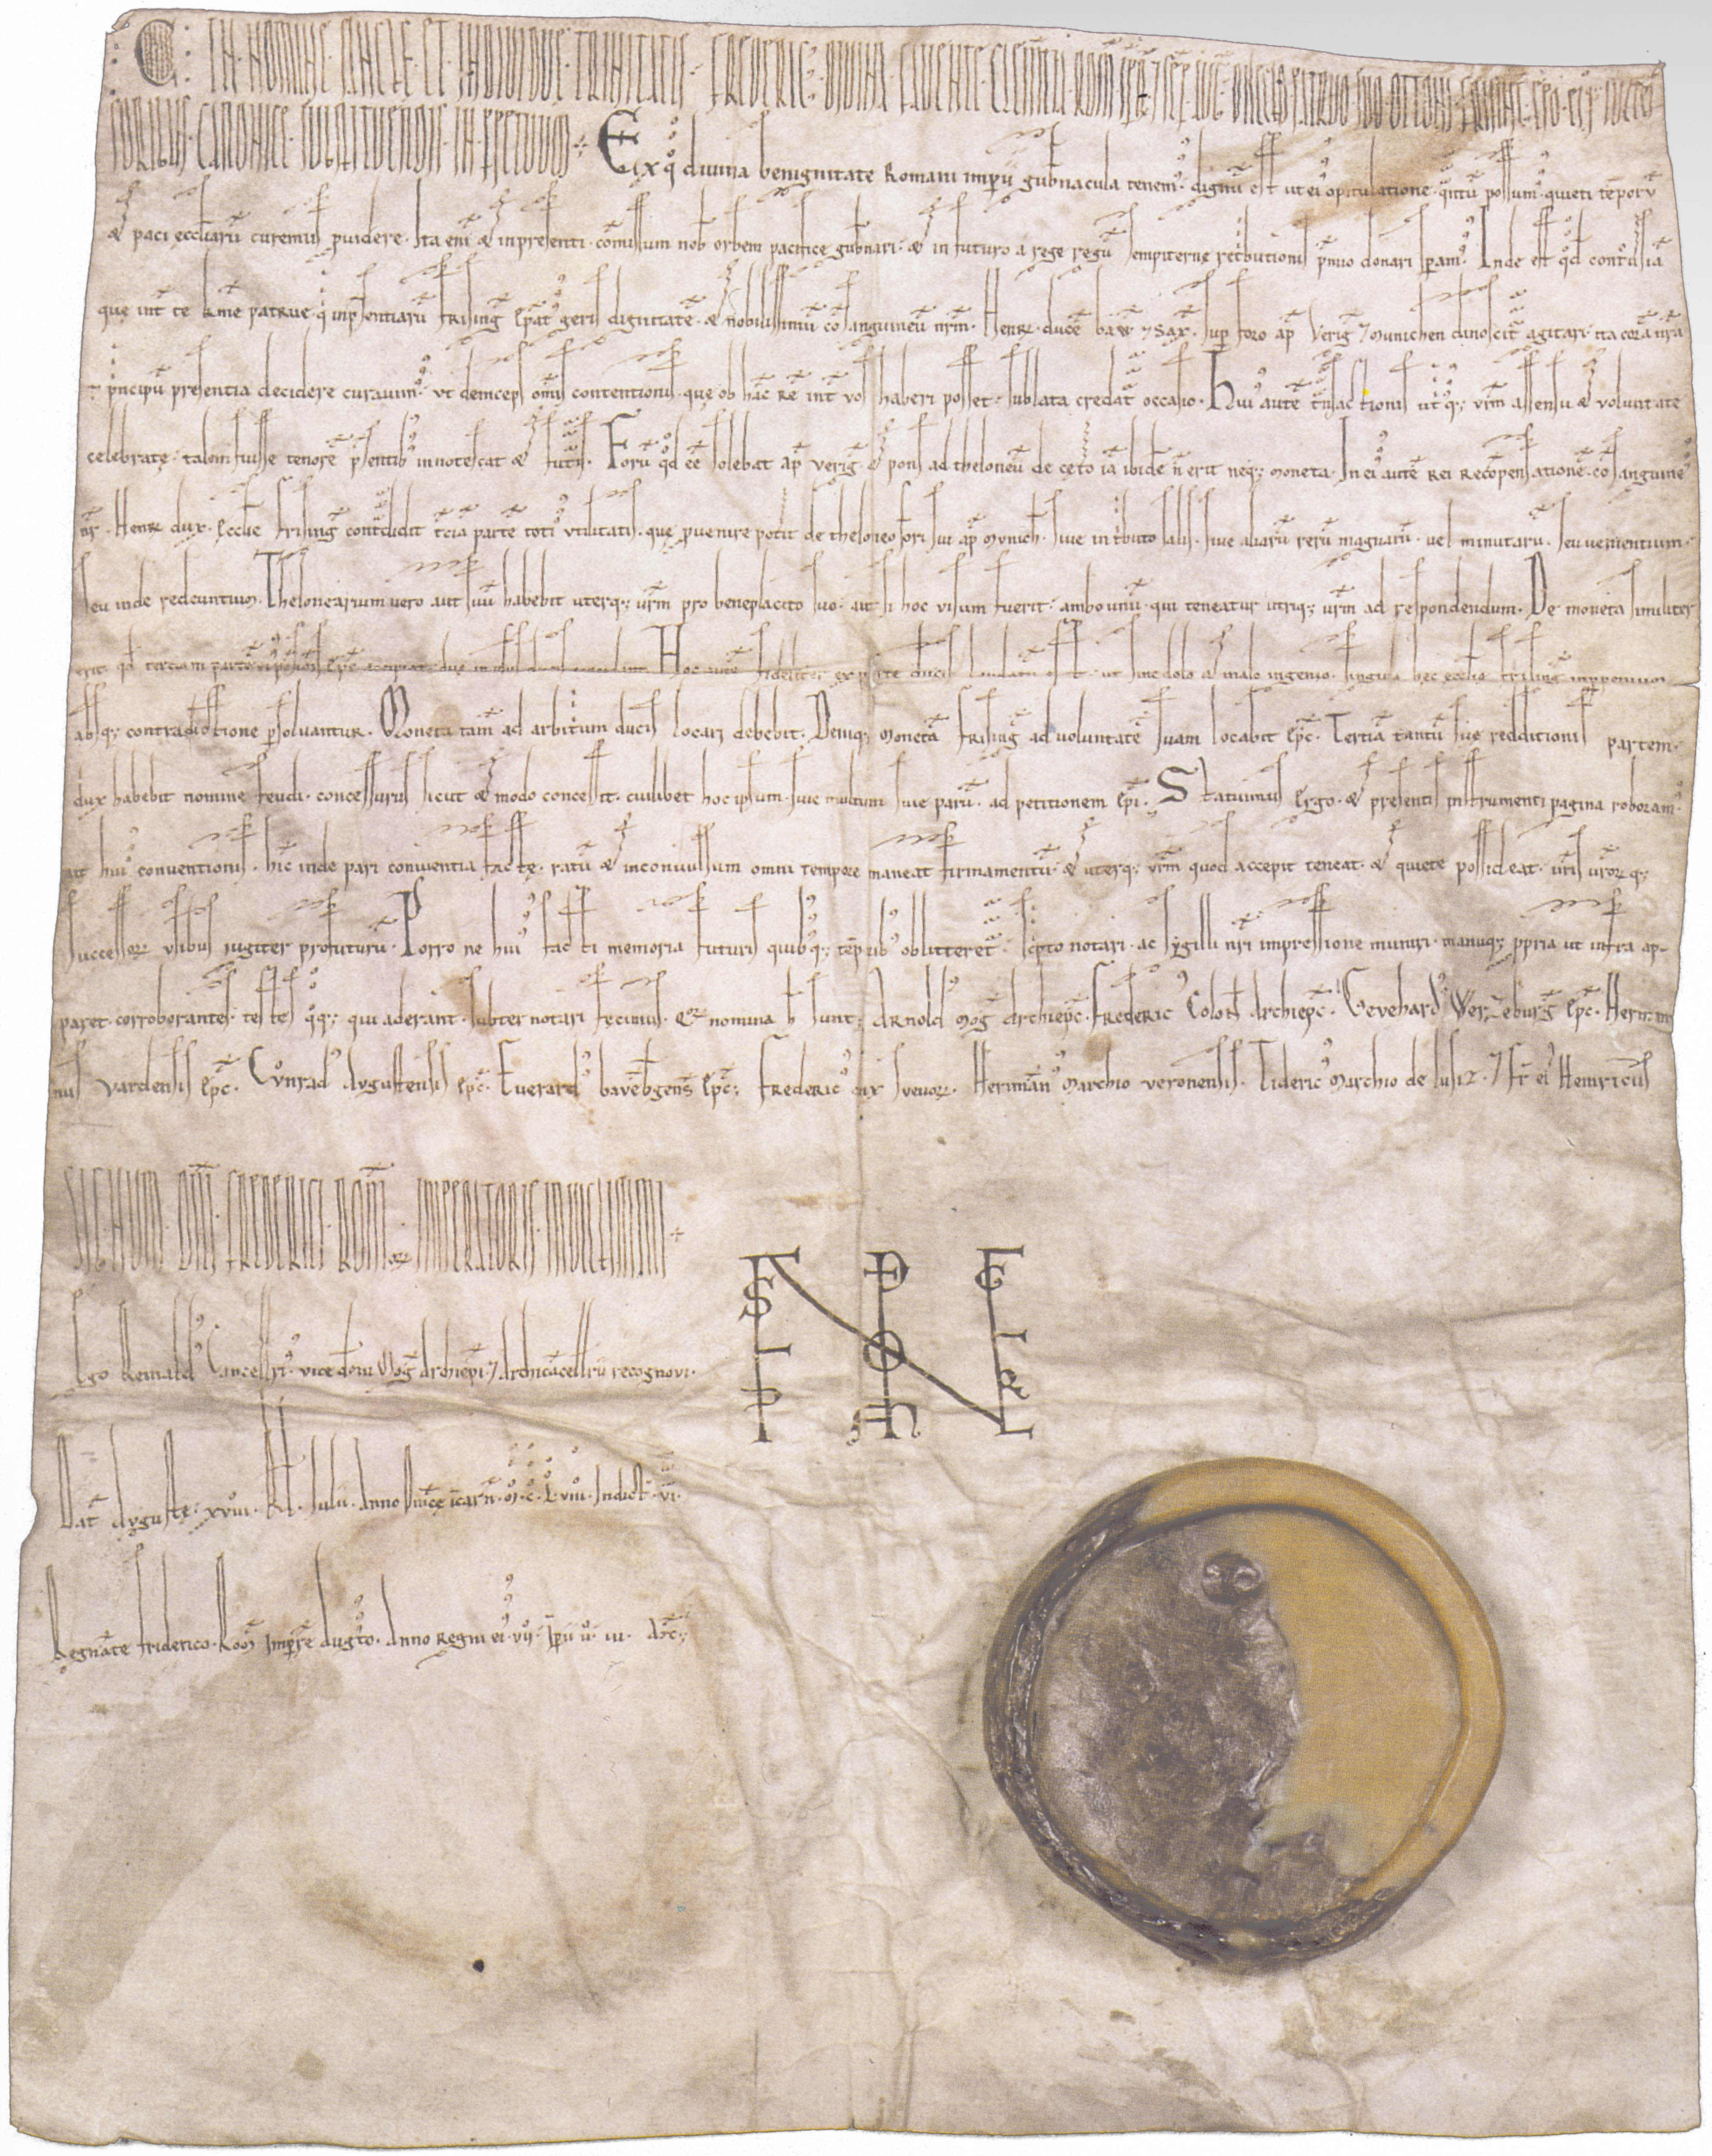 C IN NOMINE SANCTE ET INDIVIDUE TRINITATIS FREDERIC' DIVINA FAVENTE CLEMENTIA ROM IMPR ET SEP AVG DILECTO PATRVO SVO OTTONI FRISING EPO EIVSQ SVCCES
SORIBVS CANONICE SVBSTITVENDIS IN PPETVVM Ex q̊ divina benignitate Romani imperii gubnacula tenem'. dignū est ut ei' opitulatione q̄ntū possum' quieti tēporū
& paci eccl̄iarū curemus ꝓvidere. Ita eni & in presenti cōmissum nob orbem pacifice gubnari. & in futuro a rege regū sempiternę retributionis pmio donari spam'. Inde est qd controusia
quę int te kme patrue. q inpsentiarū frising ep̄at' geris dignitatē. & nobilissimū cōsanguineū nr̄m. Heinr. ducē baw. ⁊ Sax. sup foro ap Verig ⁊ Munichen dinoscit agitari. ita corā nr̄a
⁊ pncipū presentia decidere curavim'. ut deinceps om̄is contentionis. quę ob hāc rē int vos haberi posset. sublata credat occasio. Hui' autē tnsactionis utq; vr̄m assensu & voluntate
celebratę. talem fuisse tenorē psentib' innotescat & futis. Forū qd eē solebat ap verig & pons ad theloneū de cetero iā ibidē n̄ erit neq; moneta. In ei' autē rei recōpensationē. cōsanguine'
nr̄. Heinr dux. ęccl̄ie frising contdidit tciā partē toti' utilitatis. quę ꝓvenire potit de theloneo fori sui ap Munich. sive in tbuto salis. sive aliarū rerū magnarū. vel minutarū. seu venientium.
seu inde redeuntium. Thelonearium vero aut suū habebit uterq; vr̄m pro beneplacito suo. aut si hoc visum fuerit. ambo unū. qui teneatur utriq; vr̄m ad respondendum. De moneta similiter
erit. qd tertiam partē Hoc autē fideliter ex parte ducis laudatū est. ut sine dolo & malo ingenio. singula hec ęccl̄ie frising inppetuum
absq; contradictione psolvantur. Moneta tam̄ ad arbitrium ducis locari debebit. Deniq; monetā frising ad voluntatē suam locabit ep̄c. Tertiā tantū sue redditionis partem.
dux habebit nomine feudi. concessurus sicut & modo concessit. cuilibet hoc ipsum. sive multum sive parū. ad petitionem ep̄i. Statuimus ergo. & presentis instrumenti pagina roboram'.
ut hui' conventionis. hic inde pari coniventia factę. ratū & inconvulsum omni tempore maneat firmamentū. & uterq; vr̄m quod accepit teneat. & quiete possideat. vr̄is vr̄orꝝq;
successorꝝ usibus iugiter profuturū. Porro ne hui' facti memoria futuris quib'q; tēporib' oblitteret. scpto notari. ac sigilli nr̄i impressione muniri. manuq; ppria ut infra ap-
paret. corroborantes. testes qq; qui aderant. subter notari fecimus. Qꝝ nomina h̄ sunt; Arnold' Mog Archiep̄c. Frederic' Colon Archiep̄c. Gevehard' Werzeburg ep̄c. Herman
nus vardensis ep̄c. Cunrad' Augustensis ep̄c. Everard' bavēbgens ep̄c; Frederic' dux svevoꝝ. Hermān' Marchio veronensis. Tideric' Marchio de lusiz. ⁊ fr̄ ei' Heinricus
SIGNUM DM̄I FREDERICI ROM̄orꝝ IMPERATORIS INVICTISSIMI
Ego Reinald' Cancellri'. vice dom̄i Mog Archiep̄i ⁊ Archicācellrii recognovi.
Dat Avgustę. xviii. Kl. Iulii. Anno Dn̄icę icarn̄. M. C. L. viii. Indict. vi.
Regnāte friderico. Rom Imp̄re Augto. Anno Regni ei'. vii. Ip̄ii ū. iii. Am̄;